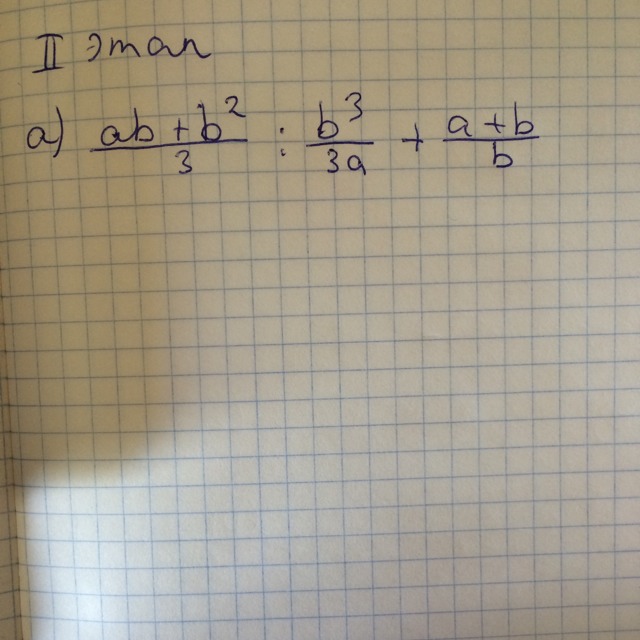 II этап
а) \frac{ab+b^2}{3} : \frac{b^3}{3a} + \frac{a+b}{b}